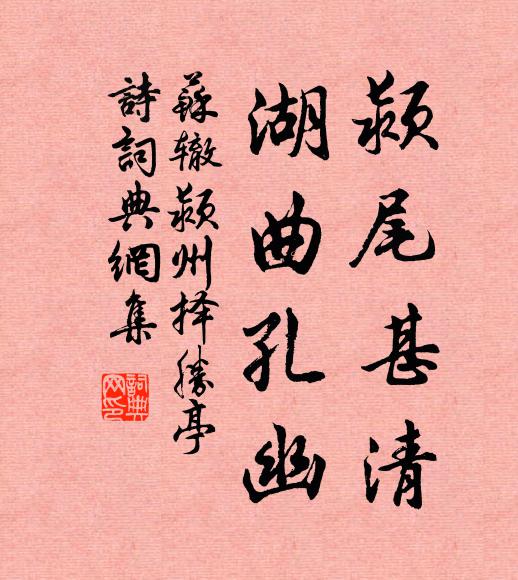 颍尾甚清
湖曲孔幽
蘇辙颍州择勝亭
詩詞典網集
詞典
网印